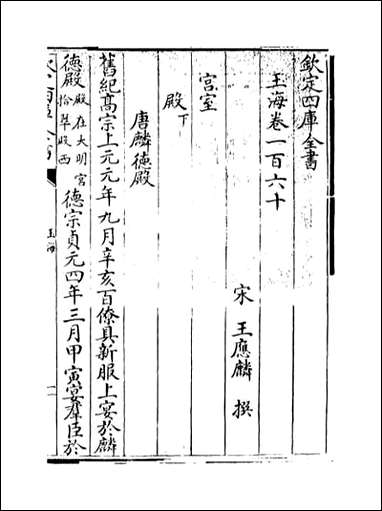 欽定四庫全書
玉海卷一百六十
宋 王應麟 撰
宫室
殿下
唐麟德殿
舊紀高宗上元元年九月辛亥百僚具新服上宴於麟
德殿殿在大明宫拾翠殿西德宗貞元四年三月甲寅宴羣臣於
玉海